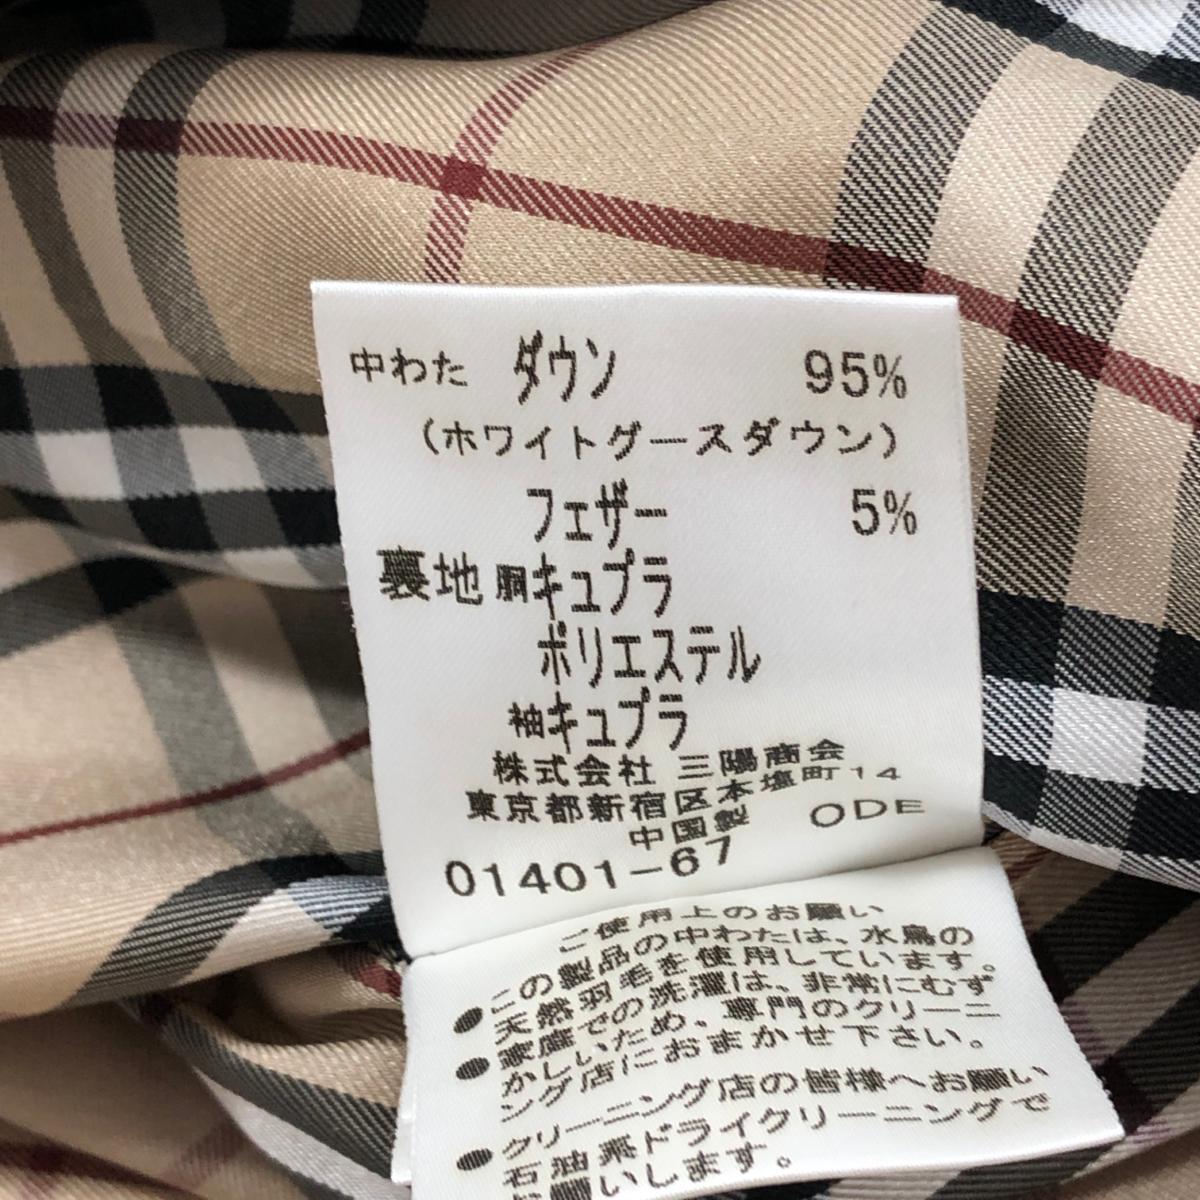 中わた ダウン 95%
(ホワイトグースダウン)
フェザー 5%
裏地 胴キュプラ
ポリエステル
袖キュプラ
株式会社 三陽商会
東京都新宿区本塩町14
中国製 ODE
01401-67
ご使用上のお願い
●この製品の中わたは、水鳥の
天然羽毛を使用しています。
●家庭での洗濯は、非常にむず
かしいため、専門のクリーニ
ング店におまかせ下さい。
●クリーニング店の皆様へお願い
石油系ドライクリーニングで
お願いします。